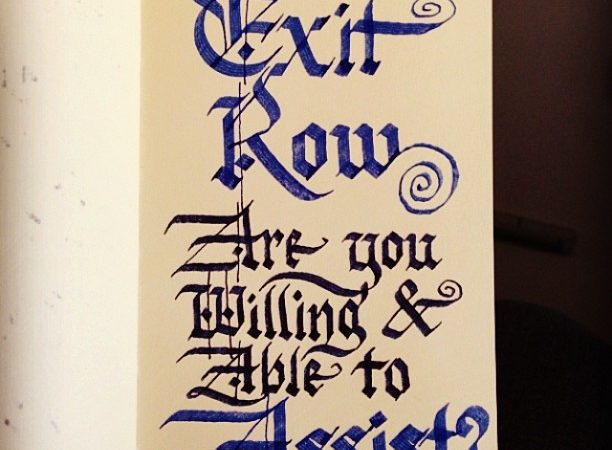 Exit
Row
Are you
Willing &
Able to
Assist?